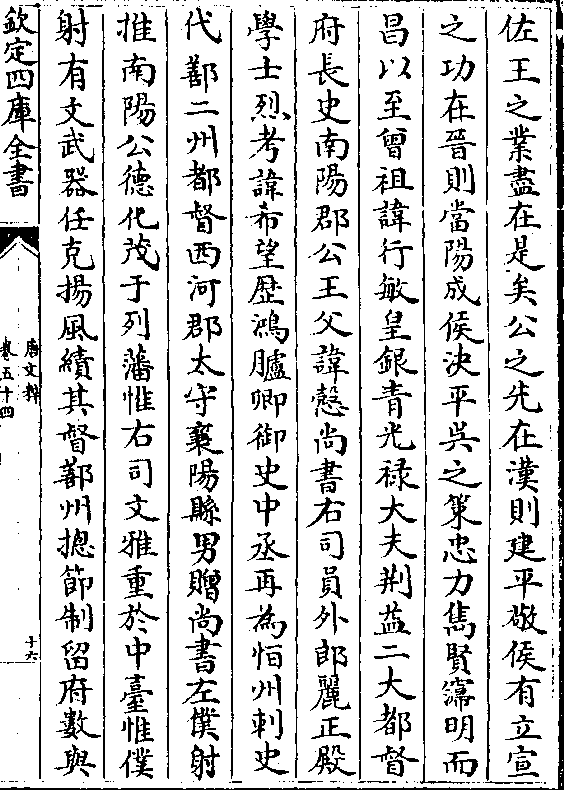 佐王之業盡在是矣公之先在漢則建平敬侯有立宣
之功在晉則當陽成侯决平吳之策忠力雋賢寗明而
昌以至曾祖諱行敏皇銀青光禄大夫荆益二大都督
府長史南陽郡公王父諱慤尚書右司員外郎麗正殿
學士烈考諱希望歴鴻臚卿御史中丞再為恒州刺史
代鄯二州都督西河郡太守襄陽縣男贈尚書左僕射
推南陽公德化茂于列藩惟右司文雅重於中臺惟僕
射有文武器任克揚風績其督鄯州摠節制留府數與
欽定四庫全書
唐文粹
卷五十四
十六